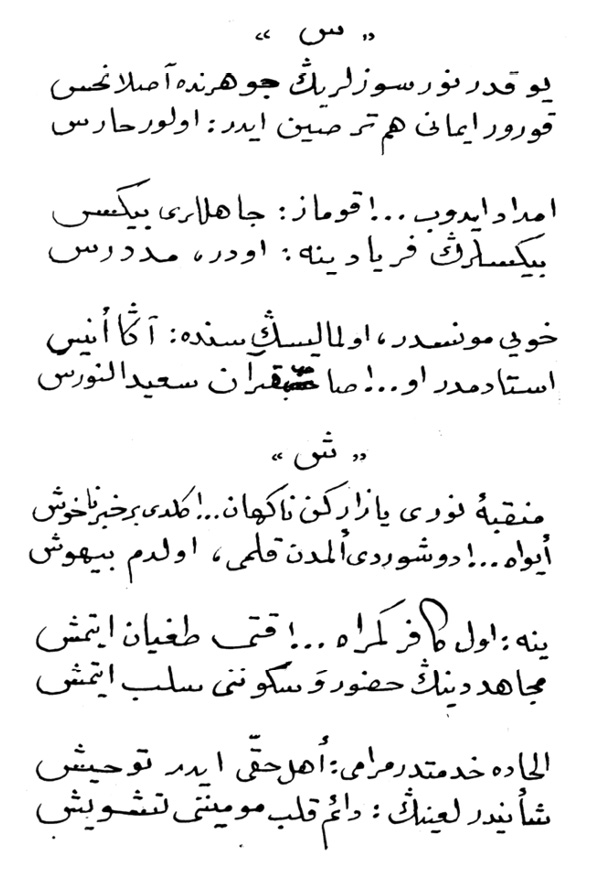 « س »
يوقدر نور سوزلرينڭ جوهرنده آصلا نحس
قورور ايمانى هم ترصين ايدر: اولور حارس
امداد ايدوب ...! قوماز: جاهللرى بيكس
بيكسلرڭ فريادينه: اودر، مددرس
خويى مونسدر، اولماليسڭ سنده: آڭا أنيس
استادمدر او...! صاحبقرآن سعيد النورس
« ش »
منقبۀ نورى يازاركن ناكهان...! كلدى بر خبر ناخوش
أيواه...! دوشوردى ألمدن قلمى، اولدم بيهوش
ينه: اول كافر كمراه ...! قتى طغيان ايتمش
مجاهد دينڭ حضور و سكوننى سلب ايتمش
الحاده خدمتدر مرامى: أهل حقّى ايدر توحيش
شأنيدر لعينڭ: دائم قلب مومينى تشويش